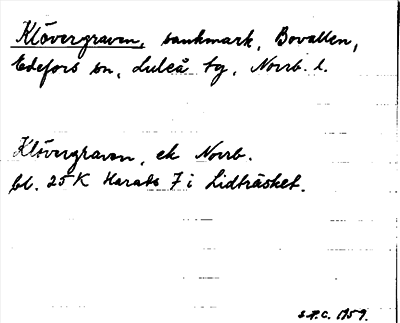 Klövergraven, sankmark, Bovallen,
Edefors sn, Luleå tg, Norrb. l.
Klövergraven, ek Norrb.
bl. 25 K Harads 7 i Lidträsket.
S.P.C. 1959.